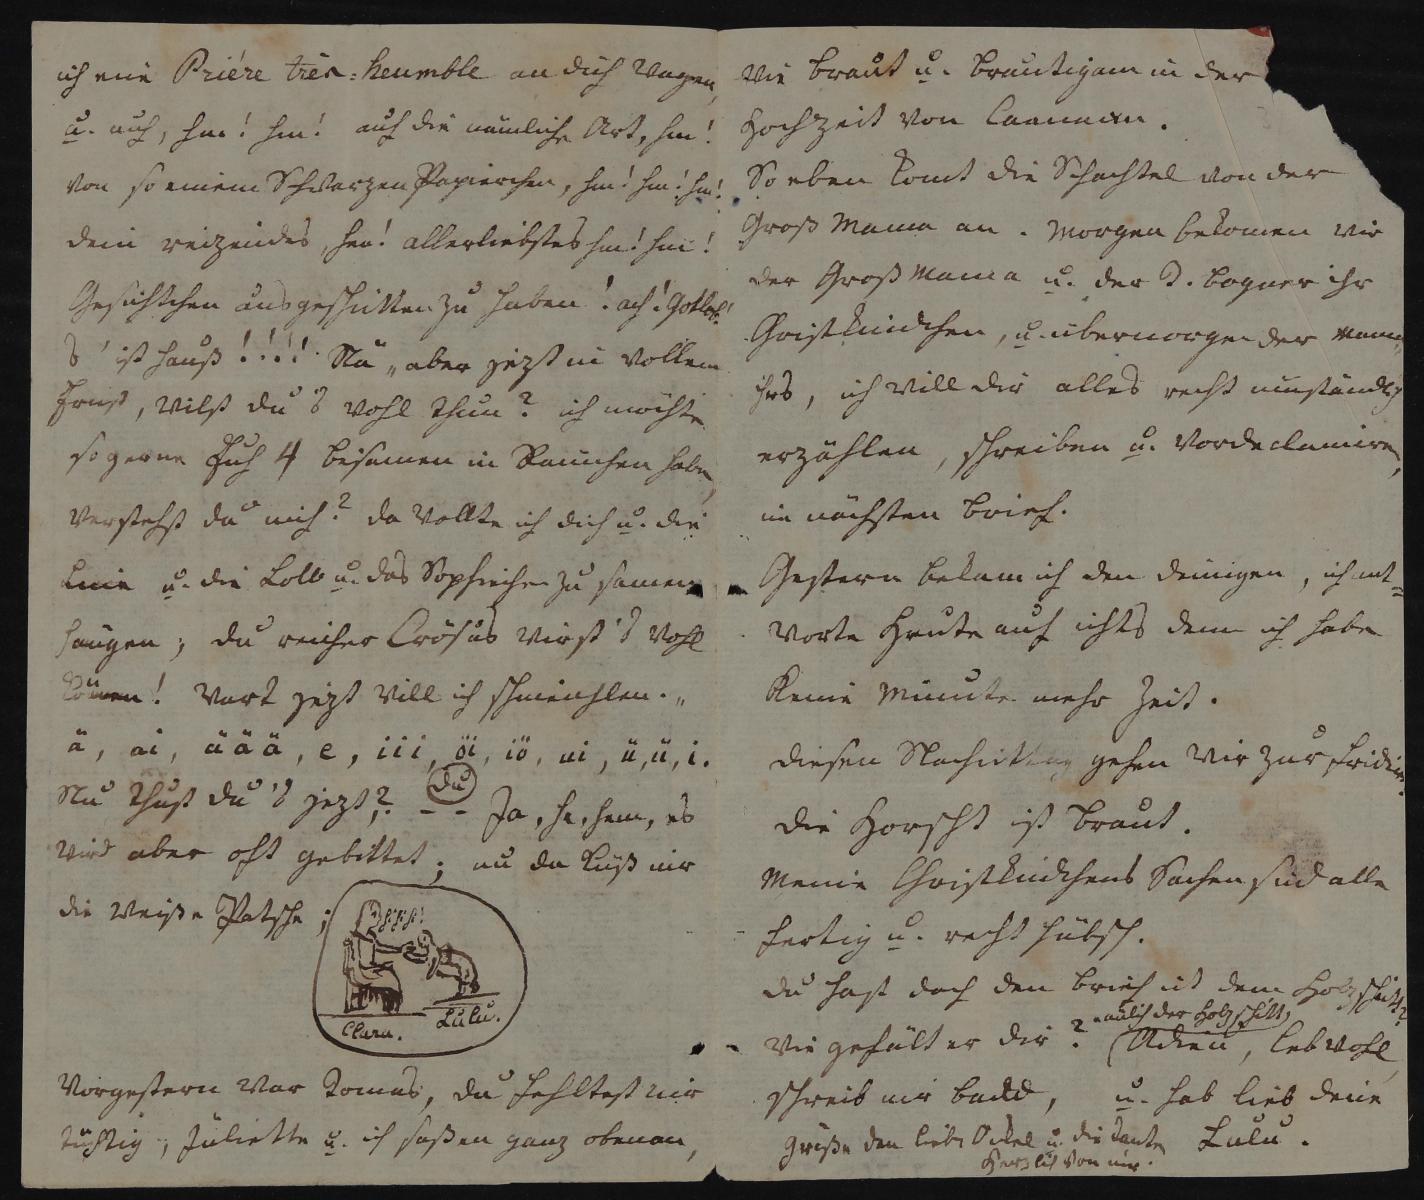 ich eine Prière très-heumble an dich wagen,
u. auf, hm! hm! auf die nämliche Art, hm!
von so einem Schwarzen Papierchen, hm! hm! hm!
dein reizendes, hm! allerliebstes hm! hm!
Gesichtchen ausgeschnitten zu haben! ach! Gottlob!
S' ist hauß!!!! Nä, aber jezt in vollem
Ernst, wilst du's wohl thun? ich möchte
so gerne Euch 4 beisamen in Rämchen haben,
verstehst du mich? da wollte ich dich u. die
Line u. die Lolo u. das Sophiechen zu samen
hängen; du reicher Crösus wirst's wohl
können! wart jezt will ich schmeichlen.„
ä, ai, äää, e, iii, öi, iö, ai, ü, ü, i.
Nu thust du's jezt? - - du Ja, he, hem, es
wird aber oft gebittet; nu da küß mir
die weiße Patsche;
Clara. Lulu.
Vorgestern war Tomas, du fehltest mir
tüchtig, Juliette u. ich saßen ganz obenan,
wie Braut u. Bräutigam in der
Hochzeit von Caanaan.
So eben komt die Schachtel von der
Groß Mama an. Morgen bekomen wir
der Groß Mama u. der D. Bogner ihr
Christkindchen, u. übermorgen der Mama
ihrs, ich will dir alles recht umständlich
erzählen, schreiben u. vordeclamiren,
im nächsten Brief.
Gestern bekam ich den deinigen, ich ant=
worte Heute auf nichts denn ich habe
Keine Minute mehr Zeit.
diesen Nachmittag gehen wir zur Fridrike.
die Horscht ist Braut.
Meine Christkindchens Sachen sind alle
fertig u. recht hübsch.
du hast doch den Brief mit dem Holzschnitt?
nämlich der Holzschnitt)
wie gefält er dir? (Adieu, leb wohl,
schreib mir bald, u. hab lieb deine
Grüße den lieben Onkel u. die Tante Lulu.
Herzlich von mir.